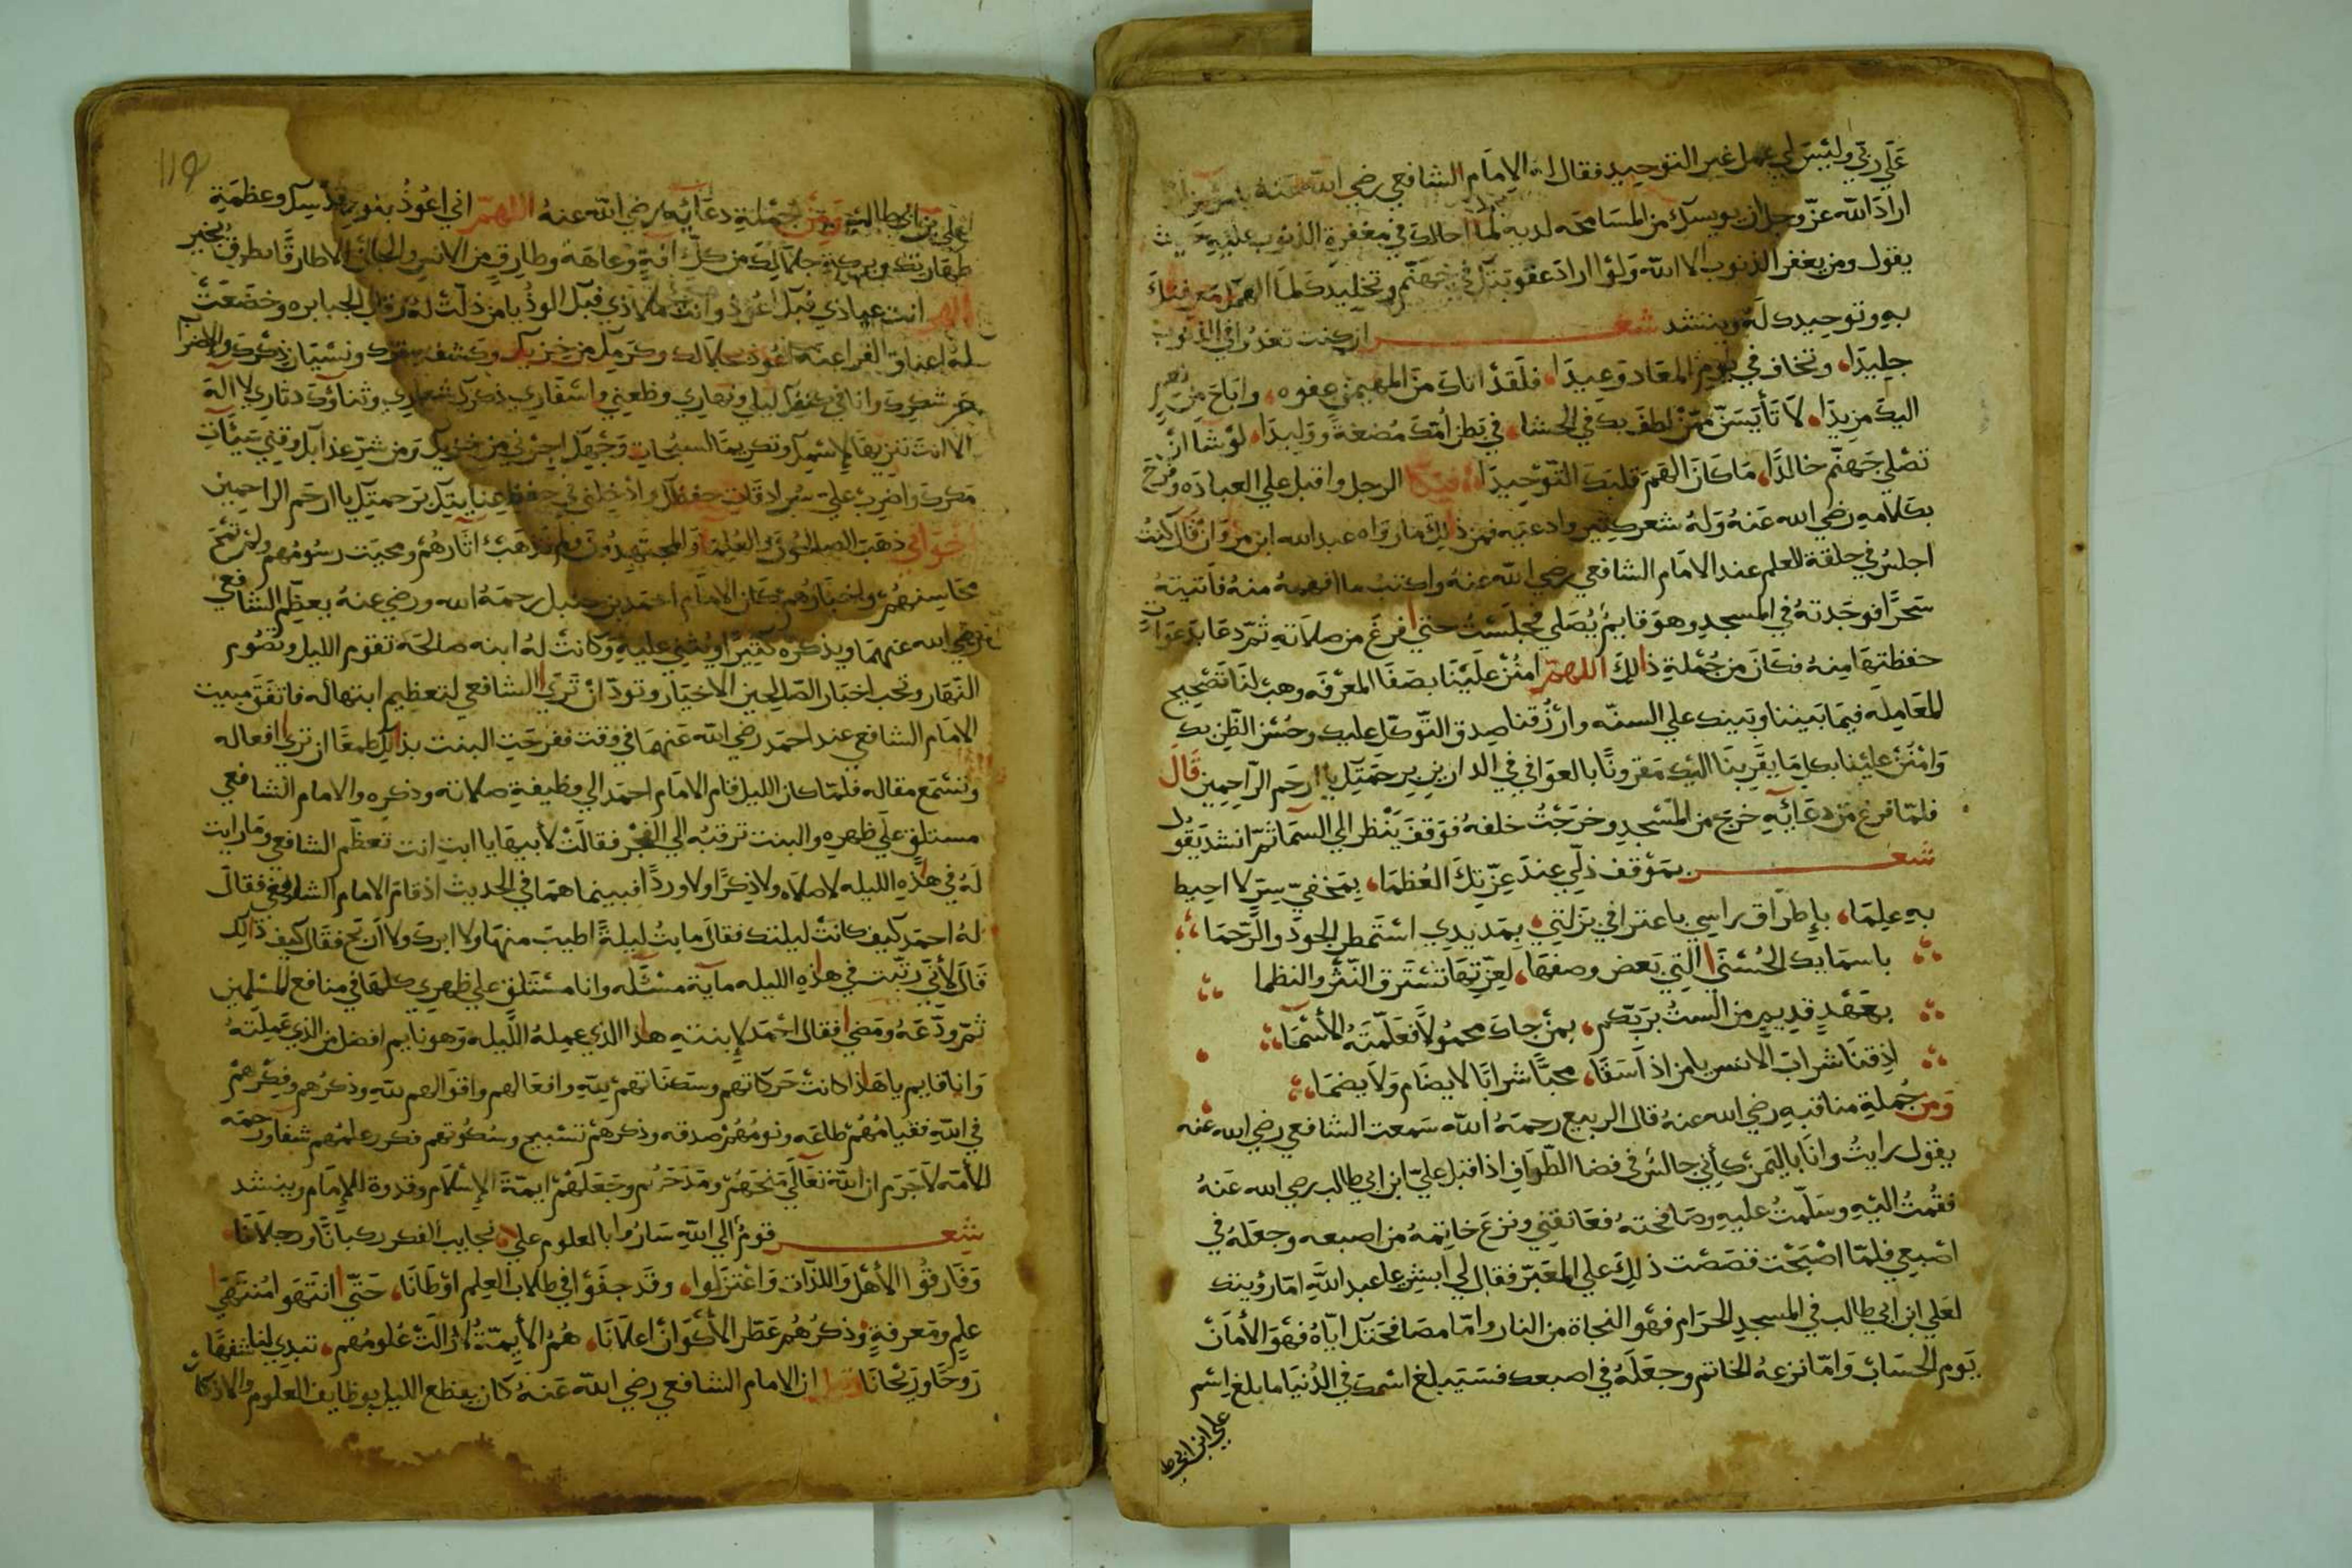 علي ربي وليس لي عمل غير التوحيد فقال له الامام الشافعي رضي الله عنه
اراد الله عز وجل ان يويسك من المسامحه لديه لما احالك في مغفرة الذنوب عليه حيث
يقول ومن يغفر الذنوب الا الله ولو اراد عقوبتك في جهنم وتخليدك لما الهمك معرفتك
به وتوحيدك له وينشد شعر ان كنت تغدوا في الذنوب
جليدا، وتخاف في يوم المعاد وعيدا، فلقد اتاك من المهيمن عفوه، واباح من نعم
اليك مزيدا، لا تأيسن من لطف بك في الحشا، في بطن امك مضغة ووليدا، لو شا ان
تصلي جهنم خالدا، ما كان الهم قلبك التوحيدا، فبكا الرجل واقبل علي العباده وفرح
بكلامه رضي الله عنه وله شعر كثير وادعيه فمن ذلك ما رواه عبد الله ابن مروان قال كنت
اجلس في حلقة للعلم عند الامام الشافعي رضي الله عنه واكتب ما افهمه منه فاتيته
سحرا فوجدته في المسجد وهو قايم يصلي فجلست حتي فرغ من صلاته ثم دعا بدعوات
حفظتها منه فكان من جملة ذالك اللهم امنن علينا بصفا المعرفه وهب لنا تصحيح
المعامله فيما بيننا وبينك علي السنه وارزقنا صدق التوكل عليك وحسن الظن بك
وامنن علينا بكل ما يقربنا اليك مقرونا بالعوافي في الدارين برحمتك يا ارحم الراحمين قال
فلما فرغ من دعايه خرج من المسجد وخرجت خلفه فوقف ينظر الي السما ثم انشد يقول
شعر بموقف ذلي عند عزتك العظما، بمخفي سر لا احيط
به علما، باطراق راسي باعترافي بزلتي، بمد يدي استمطر الجود والرحما،
باسمايك الحسني التي بعض وصفها، لعزتها تستغرق النثر والنظما
بعهد قديم من الست بربكم، بمن جاد مجهولا فعلمته الأسما،
اذقنا شراب الانس يا من اذا سقا، محبا شرابا لا يضام ولا يضما،
ومن جملة مناقبه رضي الله عنه قال الربيع رحمه الله سمعت الشافعي رضي الله عنه
يقول رايت وانا باليمن كأني جالس في فضا الطواف اذا اقبل علي ابن ابي طالب رضي الله عنه
فقمت اليه وسلمت عليه وصافحته فعانقني ونزع خاتمه من اصبعه وجعله في
اصبعي فلما اصبحت قصصت ذلك علي المعبر فقال لي ابشر يا عبد الله اما رؤيتك
لعلي ابن ابي طالب في المسجد الحرام فهو النجاة من النار واما مصافحتك اياه فهو الأمان
يوم الحساب واما نزعه الخاتم وجعله في اصبعك فسيبلغ اسمك في الدنيا ما بلغ اسم
علي ابن ابي ط
119
علي بن ابي طالب ومن جملة دعايه رضي الله عنه اللهم اني اعوذ بنور قدسك وعظمة
طهارتك وبركة جلالك من كل افة وعاهة وطارق من الانس والجان الا طارقا يطرق بخير
الهي انت عياذي فبك اعوذ وانت ملاذي فبك الوذ يا من ذلت له رقاب الجبابره وخضعت
له اعناق الفراعنه اعوذ بجلالك وكرمك من خزيك وكشف سترك ونسيان ذكرك والاضراب
عن شكرك وانا في كنفك ليلي ونهاري وظعني واسفاري ذكرك شعاري وثناؤك دثاري لا اله
الا انت تنزيها لاسمك وتكريما لسبحات وجهك اجرني من خزيك ومن شر عذابك وقني سيئات
مكرك واضرب علي سرادقات حفظك وادخلني في حفظ عنايتك برحمتك يا ارحم الراحمين
اخواني ذهب الصالحون والعلما والمجتهدون ولم تذهب اثارهم ومحيت رسومهم ولم تمح
محاسنهم واخبارهم كان الامام احمد بن حنبل رحمه الله ورضي عنه يعظم الشافعي
رضي الله عنهما ويذكره كثيرا ويثني عليه وكانت له ابنه صالحه تقوم الليل وتصوم
النهار وتحب اخبار الصالحين الاخيار وتود ان تري الشافعي لتعظيم ابيها له فاتفق مبيت
الامام الشافعي عند احمد رضي الله عنهما في وقت ففرحت البنت بذالك طمعا ان تري افعاله
وتسمع مقاله فلما كان الليل قام الامام احمد الي وظيفة صلاته وذكره والامام الشافعي
مستلق علي ظهره والبنت ترقبه الي الفجر فقالت لأبيها يا ابت انت تعظم الشافعي وما رايت
له في هذه الليله لا صلاه ولا ذكرا ولا وردا فبينما هما في الحديث اذ قام الامام الشافعي فقال
له احمد كيف كانت ليلتك فقال ما بت ليلة اطيب منها ولا ابرك ولا انجح فقال كيف ذالك
قال لأني رتبت في هذه الليله ماية مسئله وانا مستلق علي ظهري كلها في منافع المسلمين
ثم ودعه ومضي فقال احمد لابنته هذا الذي عمله الليله وهو نايم افضل من الذي عملته
وانا قايم يا هذا كانت حركاتهم وسكناتهم لله وافعالهم واقوالهم لله وذكرهم وفكرهم
في الله فقيامهم طاعه ونومهم صدقه وذكرهم تسبيح وسكوتهم فكر وعلمهم شفا ورحمه
للأمه لا جرم ان الله تعالي منحهم ومدحهم وجعلهم ايمة الإسلام وقدوة للإمام وينشد
شعر قوم الي الله ساروا بالعلوم علي، نجايب الفكر ركبانا ورجلانا،
وفارقوا الأهل واللذات واعتزلوا، وقد جفوا في طلاب العلم اوطانا، حتي انتهوا منتهي
علم ومعرفة وذكرهم عطر الأكوان اعلانا، هم الأيمة لا زالت علومهم، تبدي لنا نفحات
روحا وريحانا وقيل ان الامام الشافعي رضي الله عنه كان يقطع الليل بوظايف العلوم والاذكار